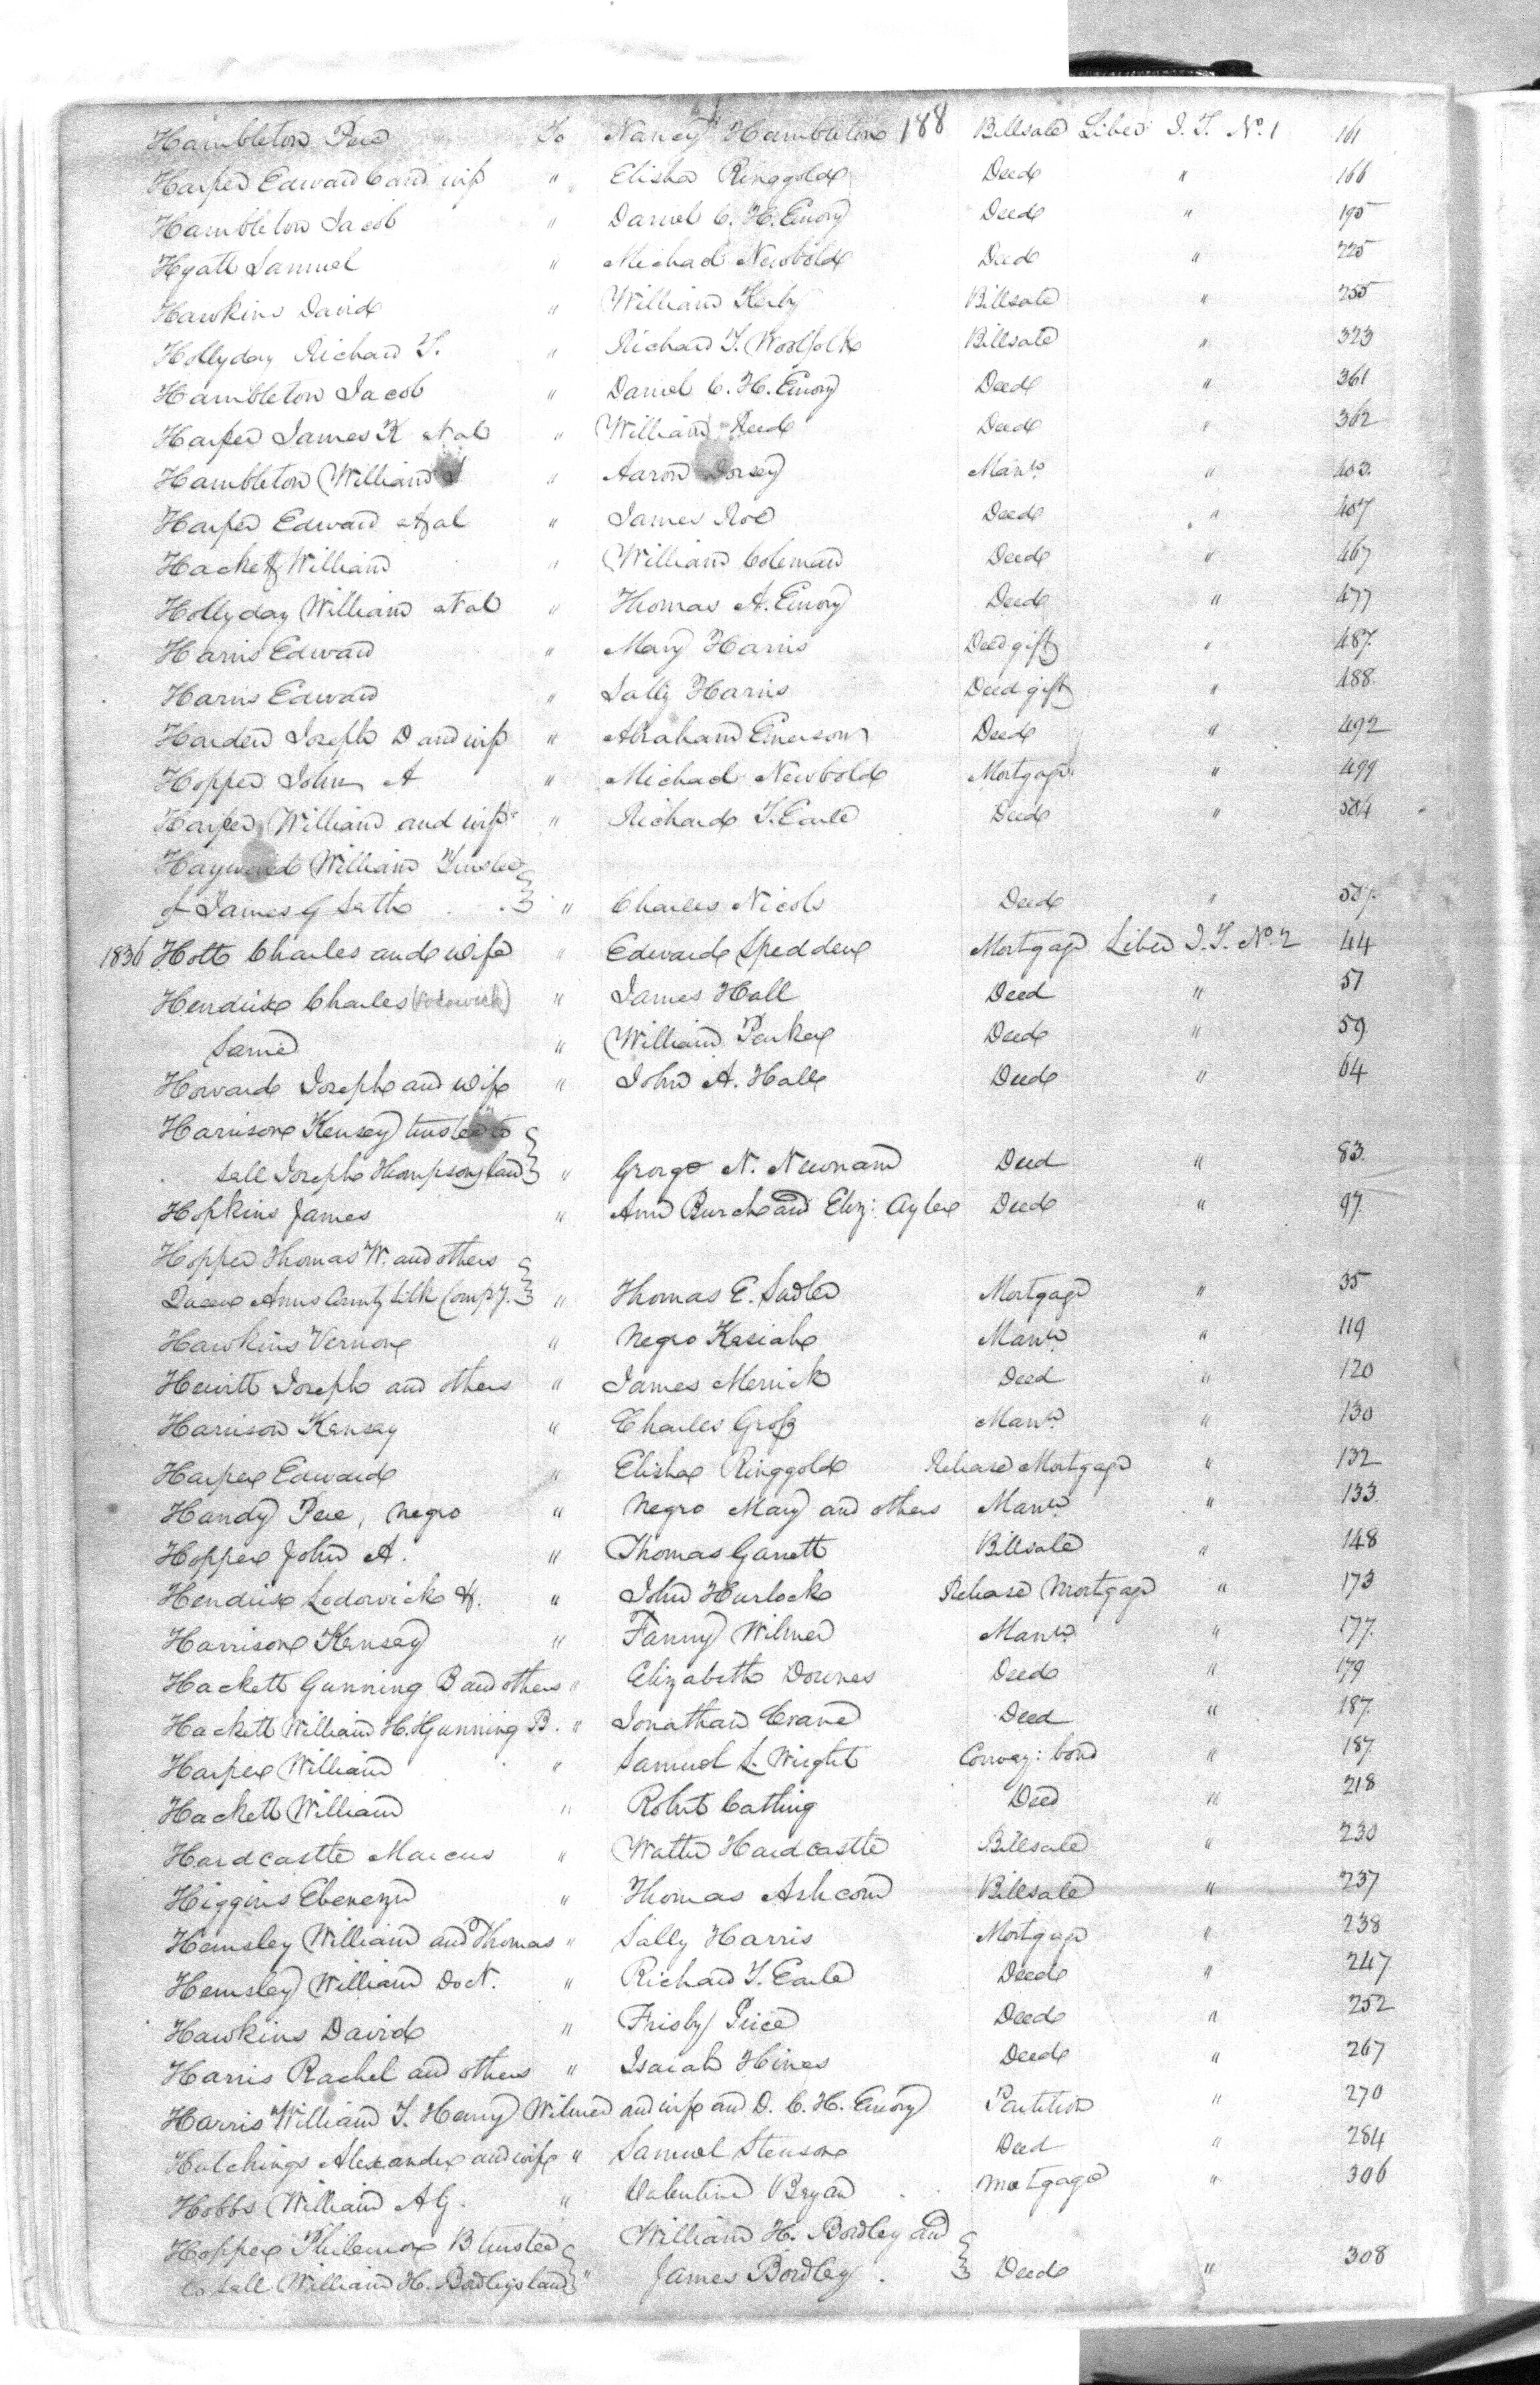 188
Hambleton Pere To Nancy Hambleton Billsale Liber I. T. No. 1 161
Harper Edward C and wife " Elisha Ringgold Deed " 166
Hambleton Jacob " Daniel C. H. Emory Deed " 195
Hyatt Samuel " Michael Newbold Deed " 225
Hawkins David " William Kerby Billsale " 255
Hollyday Richard T. " Richard T. Woolfolk Billsale " 323
Hambleton Jacob " Daniel C. H. Emory Deed " 361
Harper James K et al " William Reed Deed " 362
Hambleton William " Aaron Dorsey Mann. " 403
Harper Edward et al " James Roe Deed " 407
Hackett William " William Coleman Deed " 467
Hollyday William et al " Thomas A. Emory Deed " 477
Harris Edward " Mary Harris Deed gift " 487.
Harris Edward " Sally Harris Deed gift " 488.
Harden Joseph D and wife " Abraham Emerson Deed " 492
Hopper John A " Michael Newbold Mortgage " 499
Harper William and wife " Richard T. Earle Deed " 504
Hayward William Trustee
of James G Seth " Charles Nicols Deed "
1836 Holt Charles and wife " Edward Spedden Mortgage Liber I. T. No. 2 44
Hendrix Charles (Lodowick) " James Hall Deed " 51
Same " William Parker Deed " 59
Howard Joseph and wife " John A. Hall Deed " 64
Harrison Kensey trustee to
sell Joseph Thompsons land " George N. Newnam Deed " 83
Hopkins James " Ann Burch and Eliz: Ayler Deed " 97
Hopper Thomas W. and others
Queen Anns County Silk Compy. " Thomas E. Sudler Mortgage " 35
Hawkins Vernon " Negro Kesiah Mann. " 119
Hewitt Joseph and others " James Merrick Deed " 120
Harrison Kensey " Charles Gross Mann. " 130
Harper Edward " Elisha Ringgold Release Mortgage " 132
Handy Pere, negro " Negro Mary and others Mann. " 133
Hopper John A. " Thomas Garrett Billsale " 148
Hendrix Lodowick H. " John Hurlock Release Mortgage " 173
Harrison Kensey " Fanny Wilmer Mann. " 177.
Hackett Gunning B and others " Elizabeth Downes Deed " 179
Hackett William H. & Gunning B. " Jonathan Evans Deed " 187.
Harper William " Samuel L. Wright Convey: bond " 187.
Hackett William " Robert Catling Deed " 218
Hardcastle Marcus " Walter Hardcastle Billsale " 230
Higgins Ebenezer " Thomas Ashcom Billsale " 237
Hemsley William and Thomas " Sally Harris Mortgage " 238
Hemsley William Doct. " Richard T. Earle Deed " 247
Hawkins David " Frisby Price Deed " 252
Harris Rachel and others " Isaiah Hines Deed " 267
Harris William T. Henry Wilmer and wife and D. C. H. Emory Partition " 270
Hutchings Alexander and wife " Samuel Stenson Deed " 284
Hobbs William A G. " Valentine Bryan Mortgage " 306
Hopper Philemon B trustee William H. Bordley and
to sell William H. Bordleys land " James Bordley. Deed " 308